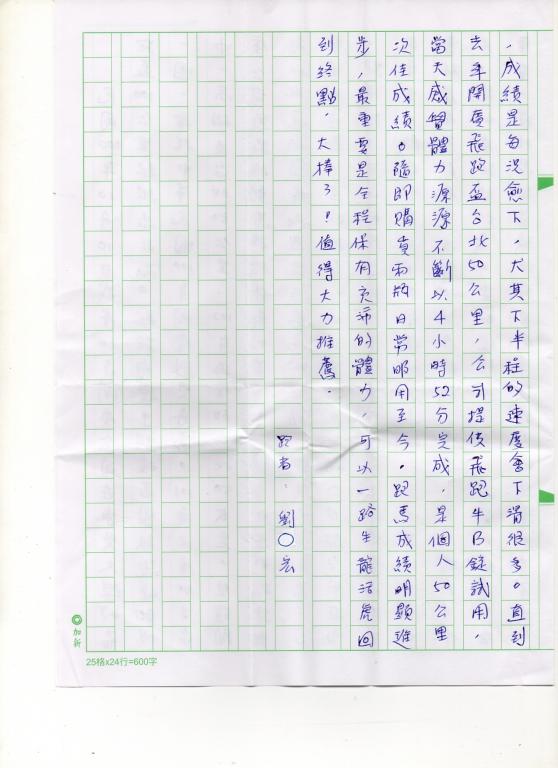 ，成績是每況愈下，尤其下半程的速度會下滑很多。直到
去年開廣飛跑盃台北50公里，公司提供飛跑牛B錠試用，
當天感覺體力源源不斷以4小時52分完成，是個人50公里
次佳成績。隨即購買兩瓶日常服用至今。跑馬成績明顯進
步，最重要是全程保有充沛的體力，可以一路生龍活虎回
到終點。大棒了！值得大力推薦。
跑者 劉〇宏
加新
25格x24行=600字